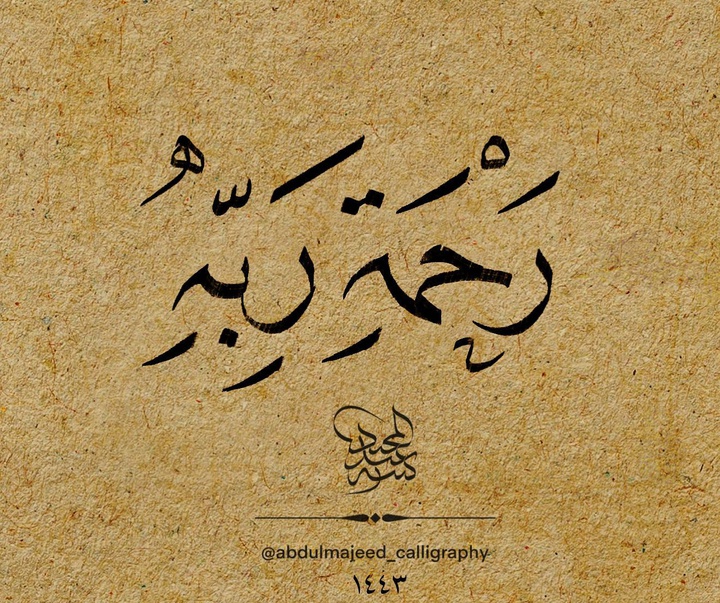 رَحْمَةِ رَبِّهِ
كتبه عبد المجيد
@abdulmajeed_calligraphy
١٤٤٣